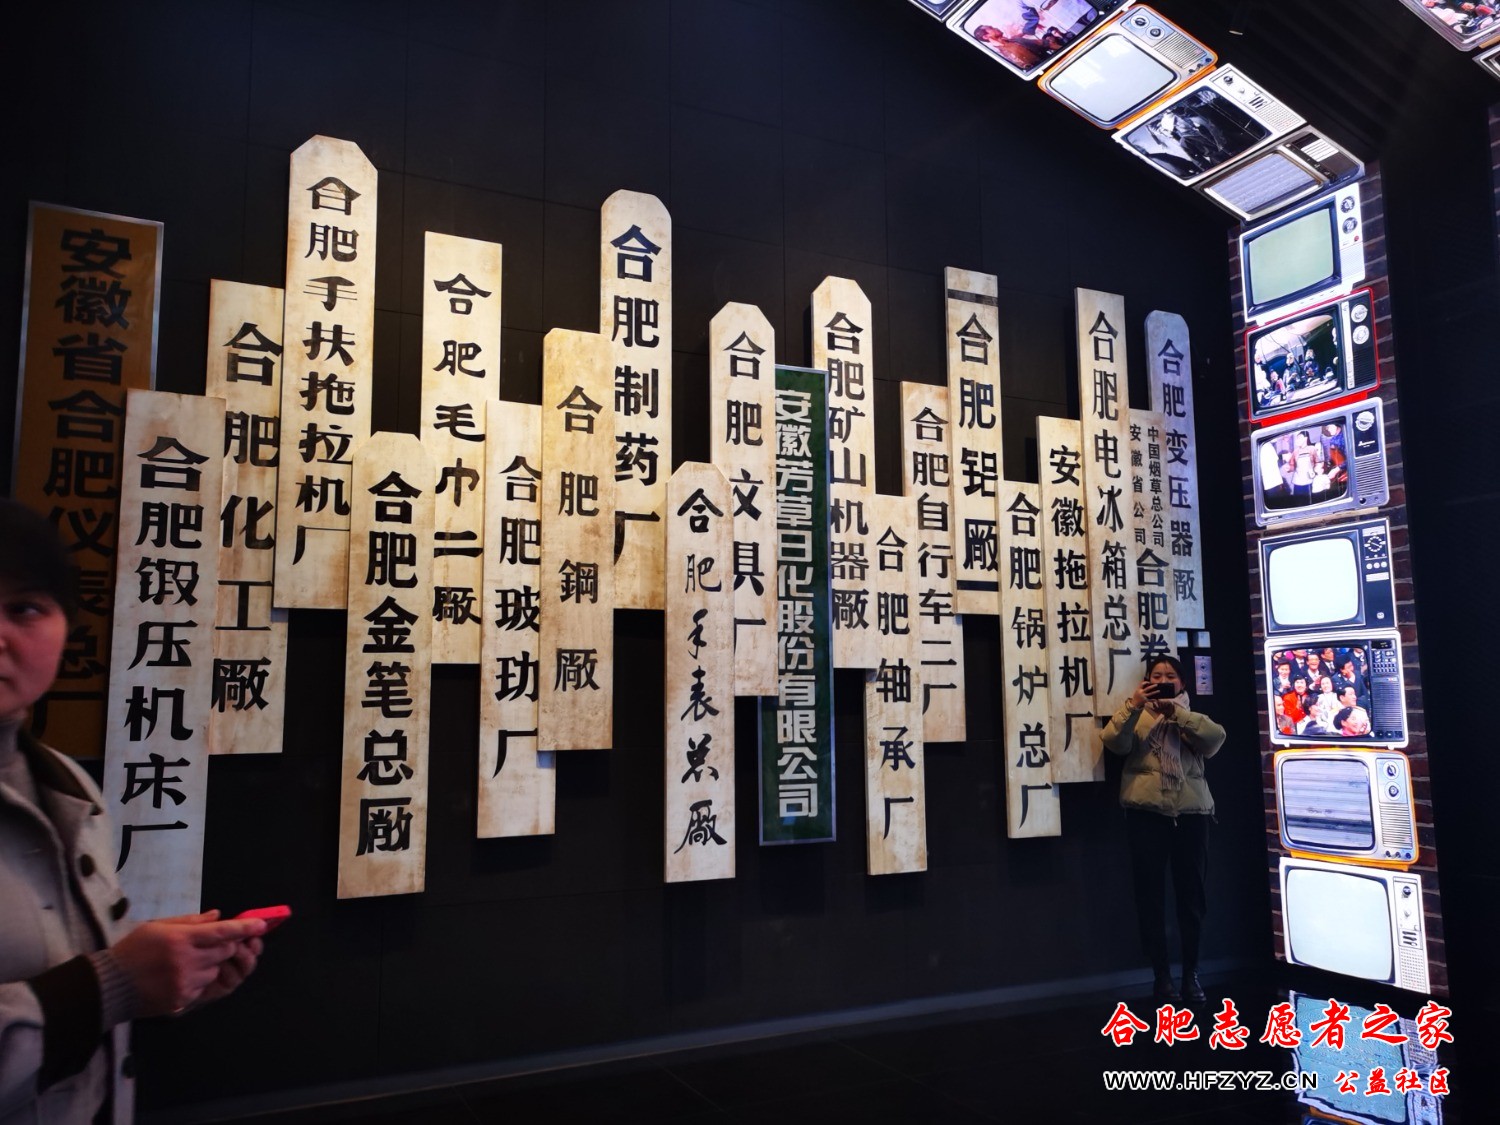 安徽省合肥仪表总厂
合肥锻压机床厂
合肥化工廠
合肥手扶拖拉机厂
合肥金笔总厰
合肥毛巾二廠
合肥玻功厂
合肥鋼廠
合肥制药厂
合肥手表总廠
合肥文具厂
安徽芳草日化股份有限公司
合肥矿山机器廠
合肥轴承厂
合肥自行车二厂
合肥铝廠
合肥锅炉总厂
安徽拖拉机厂
合肥电冰箱总厂
中国烟草总公司
安徽省公司
合肥卷
合肥变压器廠
合肥志愿者之家
WWW.HFZYZ.CN 公益社区